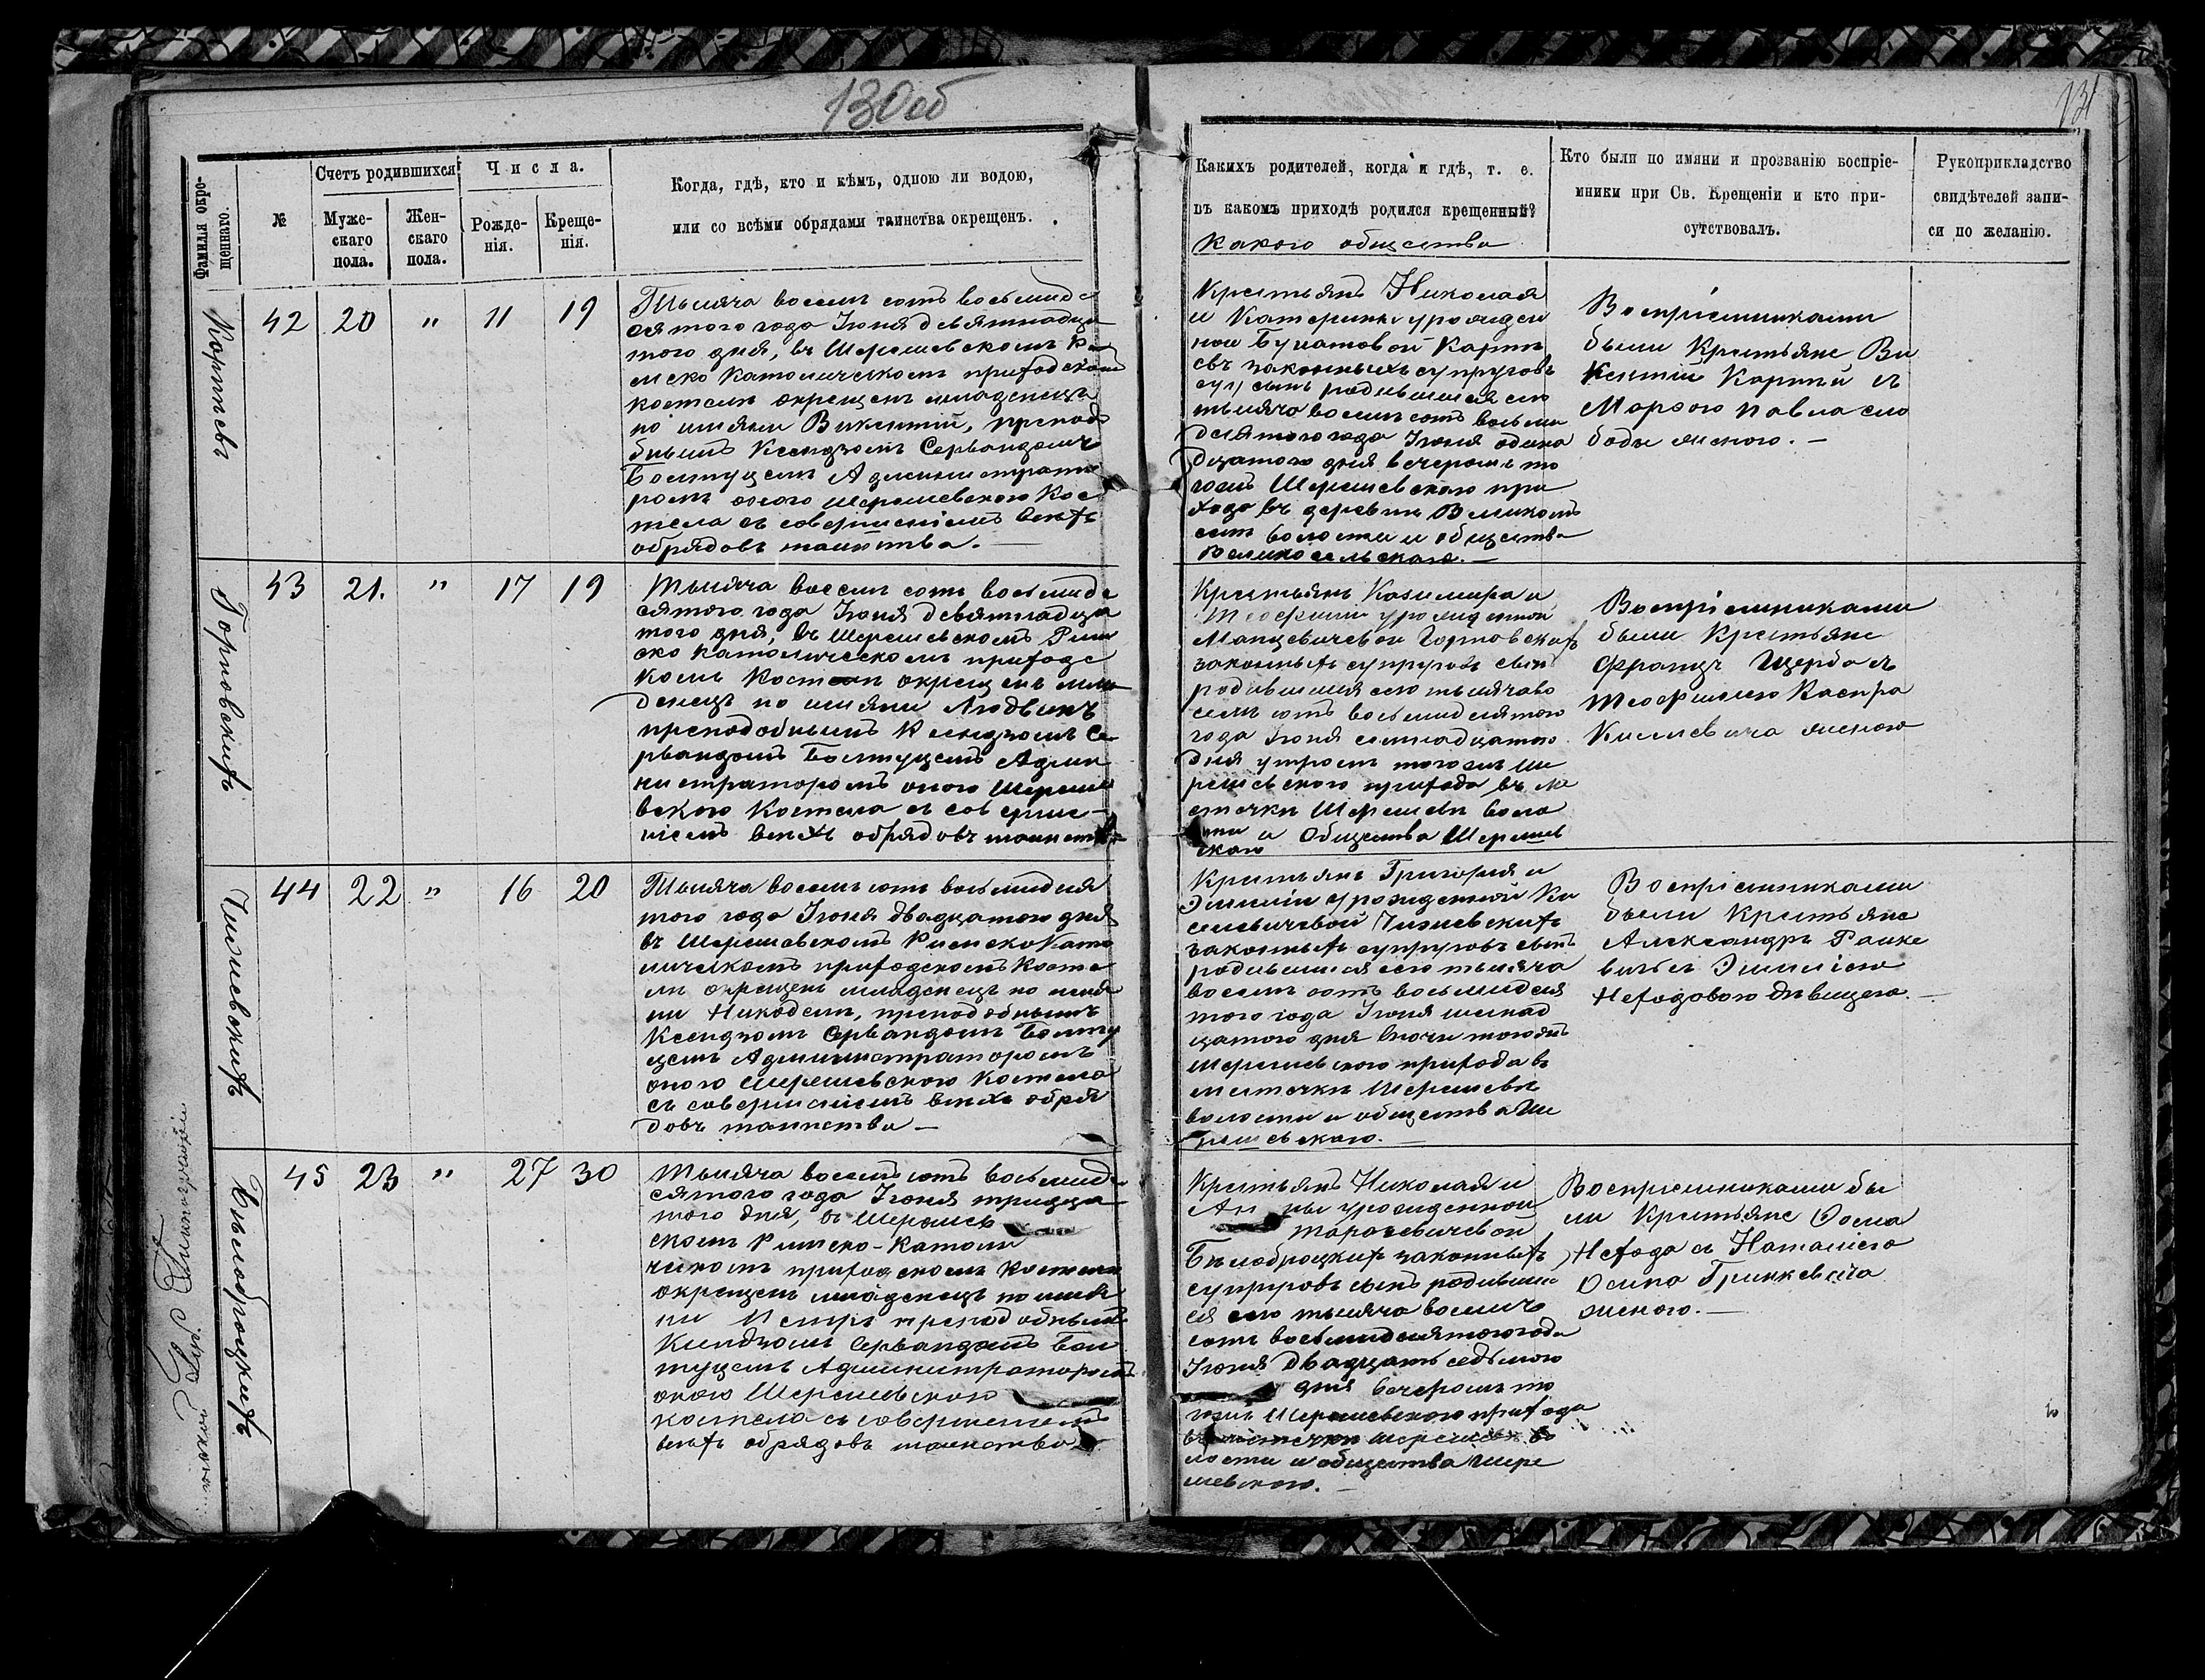 130об
131
Фамилія окре-
щеннаго.
№
Счетъ родившихся
Муже-
скаго
пола.
Жен-
скаго
пола.
Числа.
Рожде-
нія.
Креще-
нія.
Когда, гдѣ, кто и кѣмъ, одною ли водою,
или со всѣми обрядами таинства окрещенъ.
Какихъ родителей, когда и гдѣ, т. е.
въ какомъ приходѣ родился крещенный?
какого общества
Кто были по имяни и прозванію воспріе-
мники при Св. Крещеніи и кто при-
сутствовалъ.
Рукоприкладство
свидѣтелей запи-
си по желанію.
42 20 " 11 19
Тысяча восемь сотъ восьмиде
сятого года Іюня девятнадца
того дня, въ Шерешевскомъ Ри
мско Католическомъ приходскомъ
костелѣ окрещенъ младенецъ
по имяни Викентій, преподо
бнымъ Ксендзомъ
Администрато
ромъ оного Шерешевского Кос
тела съ совершеніемъ всѣхъ
обрядовъ таинства. —
Крестьянъ Николая
и Катерины урожден
ной
законныхъ супруговъ
сынъ родившійся сего
тысяча восемь сотъ восьми
десятого года Іюня одина
дцатого дня вечеромъ то
гожъ Шерешевского при
хода въ деревнѣ Великомъ
селѣ волости и общества
Великосельского. —
Воспріемниками
были Крестьяне Ви
кентій Карпій съ
Марѳою Павла
жаною. —
43 21. " 17 19
Горновскихъ
Тысяча восемь сотъ восьмиде
сятого года Іюня девятнадца
того дня, въ Шерешевскомъ Рим
ско Католическомъ приходс
комъ Костелѣ окрещенъ мла
денецъ по имяни Людвикъ
преподобнымъ Ксендзомъ Се
рвандомъ Админи
нистраторомъ оного Шереше
вского Костела съ соверше-
ніемъ всѣхъ обрядовъ таинства
Крестьянъ Казимира и
Теофилии урожденной
Манцевичевой Горновскихъ
законныхъ супруговъ сынъ
родившійся сего тысяча во
семь сотъ восьмидесятого
года Іюня семнадцатого
дня утромъ тогожъ Ше
решевского прихода въ мѣ
стечкѣ Шерешевѣ воло
сти и Общества Шерешев
ского
Воспріемниками
были Крестьяне
Францъ Щерба съ
Теофилею Каспра
Киселевича женою
44 22 " 16 20
Тысяча восемь сотъ восьмидеся
того года Іюня двадцатого дня
въ Шерешевскомъ Римско Като
лическомъ приходскомъ Косте
лѣ окрещенъ младенецъ по имя
ни Никодемъ, преподобнымъ
Ксендзомъ Сервандомъ
Администраторомъ
оного Шерешевского Костела
съ совершеніемъ всѣхъ обря
довъ таинства —
Крестьянъ Григорія и
Эмиліи урожденной Ки
селевичевой
законныхъ супруговъ сынъ
родившійся сего тысяча
восемь сотъ восьмидеся
того года Іюня шестнад
цатого дня вночи тогожъ
Шерешевского прихода въ
мѣстечкѣ Шерешевѣ
волости и общества Ше
решевского. —
Воспріемниками
были Крестьяне
Александръ
съ Эмиліею
Неходовою дѣвицею. —
45 23 " 27 30
Бѣлоброцкихъ
Тысяча восемь сотъ восьмиде
сятого года Іюня тридца
того дня, въ Шерешев
скомъ Римско-Католи
ческомъ приходскомъ костелѣ
окрещенъ младенецъ по имя
ни Петръ преподобнымъ
Ксендзомъ Сервандомъ
Администраторомъ
оного Шерешевского
костела съ совершеніемъ
всѣхъ обрядовъ таинства
Крестьянъ Николая и
Анны урожденной
Тарасевичевой
Бѣлоброцкихъ законныхъ
супруговъ сынъ родивший
ся сего тысяча восемь
сотъ восьмидесятого года
Іюня двадцать седьмого
дня вечеромъ то
гожъ Шерешевского прихода
въ мѣстечкѣ Шерешевѣ во
лости и общества Шере
шевского. —
Воспріемниками бы
ли Крестьяне Осипъ
Нехода съ Наталіею
Осипа Гринкевича
женою. —